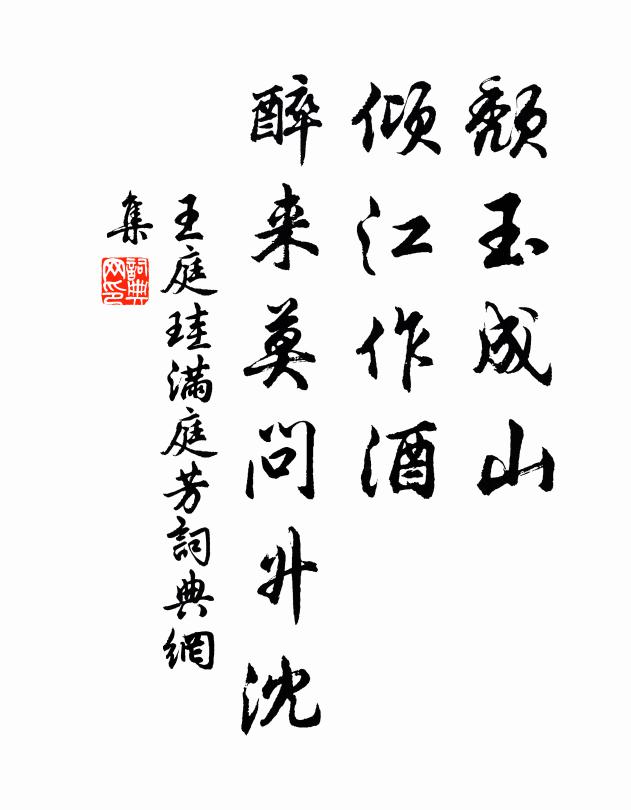 颓玉成山
倾江作酒
醉来莫问升沈
王庭珪满庭芳词典网
集
词典网印